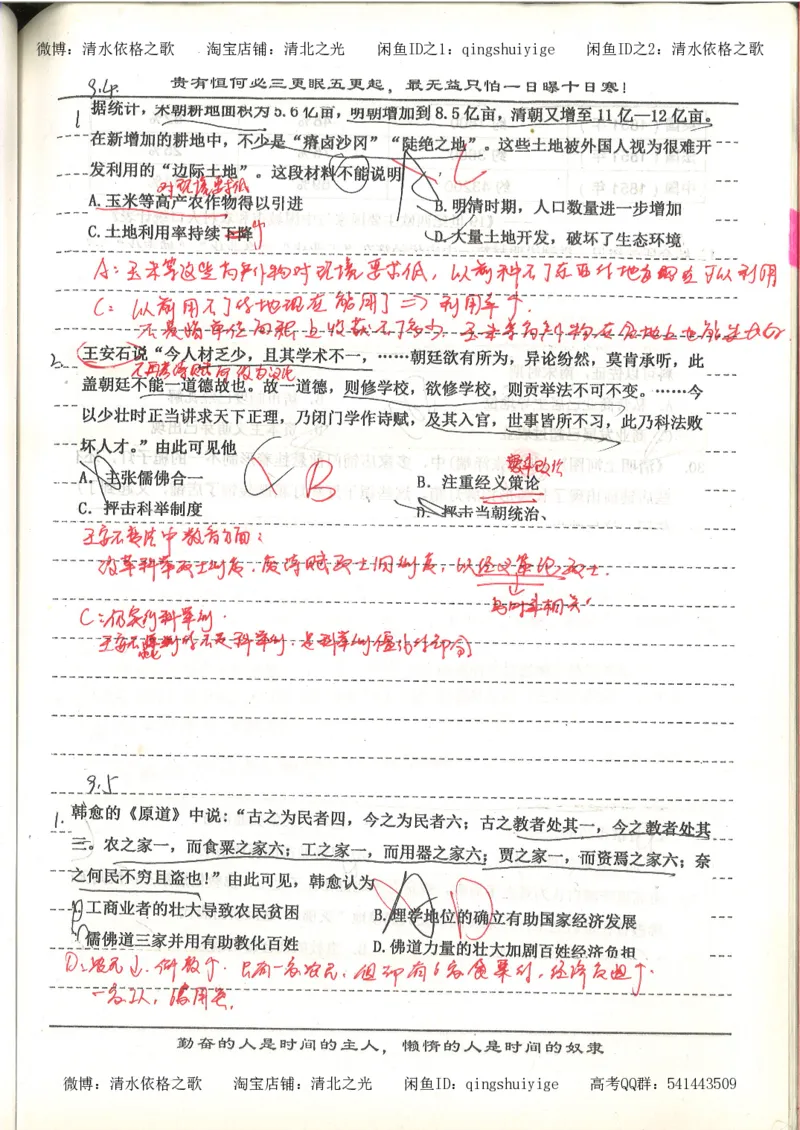 微博：清水依格之歌 淘宝店铺：清北之光 闲鱼ID之1：qingshuiyige 闲鱼ID之2：清水依格之歌
9.4
贵有恒何必三更眠五更起，最无益只怕一日曝十日寒！
1 据统计，宋朝耕地面积为5.6亿亩，明朝增加到8.5亿亩，清朝又增至11亿—12亿亩。
在新增加的耕地中，不少是“瘠卤沙冈”“陡绝之地”。这些土地被外国人视为很难开
发利用的“边际土地”。这段材料不能说明 A C
对环境要求低
A.玉米等高产农作物得以引进 B.明清时期，人口数量进一步增加
C.土地利用率持续下降 D.大量土地开发，破坏了生态环境
A：玉米等这些农作物对环境要求低，以前种不了东西的地方也可以利用
C：以前用不了的地现在能用了⇒利用率↑
2. 王安石说“今人材乏少，且其学术不一，……朝廷欲有所为，异论纷然，莫肯承听，此
盖朝廷不能一道德故也。故一道德，则修学校，欲修学校，则贡举法不可不变。……今
以少壮时正当讲求天下正理，乃闭门学作诗赋，及其入官，世事皆所不习，此乃科法败
坏人才。”由此可见他 C B
A. 主张儒佛合一 B. 注重经义策论
C. 抨击科举制度 D. 抨击当朝统治、
王安石变法中教育方面：
改革科举取士制度，废诗赋取士旧制度，以经义策论取士.
与时事相关
C：仍实行科举制.
9.5
1. 韩愈的《原道》中说：“古之为民者四，今之为民者六；古之教者处其一，今之教者处其
三。农之家一，而食粟之家六；工之家一，而用器之家六；贾之家一，而资焉之家六；奈
之何民不穷且盗也！”由此可见，韩愈认为 A D
A.工商业者的壮大导致农民贫困 B.理学地位的确立有助国家经济发展
C.儒佛道三家并用有助教化百姓 D.佛道力量的壮大加剧百姓经济负担
勤奋的人是时间的主人，懒惰的人是时间的奴隶
微博：清水依格之歌 淘宝店铺：清北之光 闲鱼ID：qingshuiyige 高考QQ群：541443509